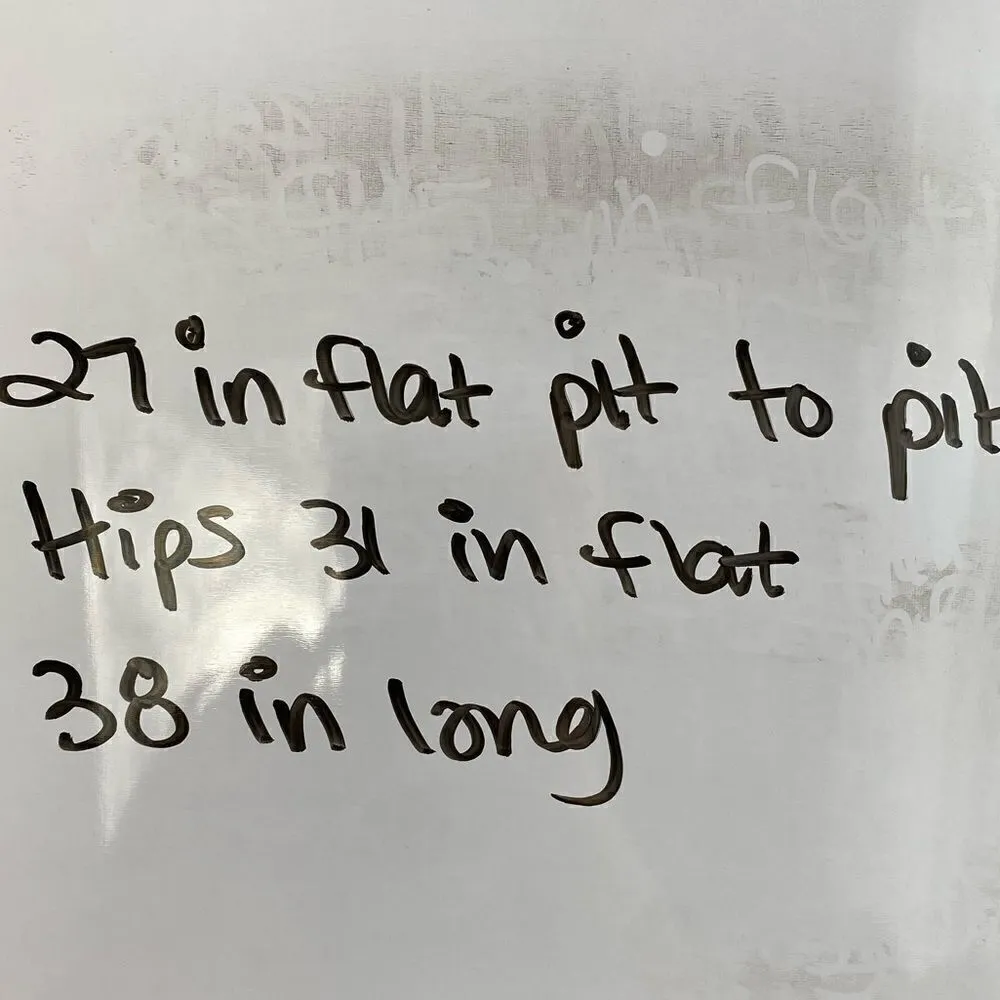 27 in flat pit to pit
Hips 31 in flat
38 in long